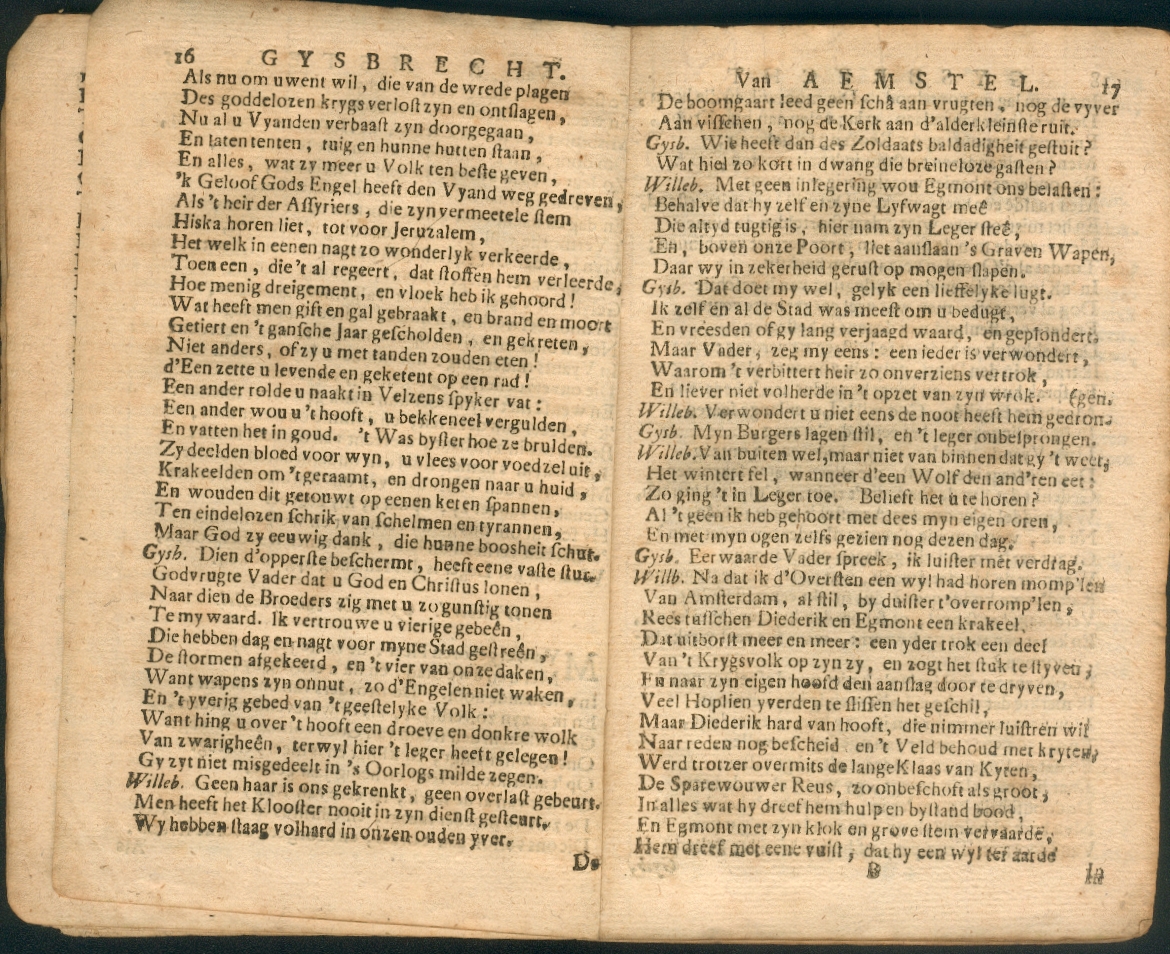 16 GYSBRECHT.
Als nu om uwent wil, die van de wrede plagen
Des goddelozen krygs verlost zyn en ontslagen,
Nu al u Vyanden verbaast zyn doorgegaan,
En laten tenten, tuig en hunne hutten staan,
En alles, wat zy meer u Volk ten beste geven,
'k Geloof Gods Engel heeft den Vyand weg gedreven,
Als 't heir der Assyriers, die zyn vermeetele stem
Hiska horen liet, tot voor Jeruzalem,
Het welk in eenen nagt zo wonderlyk verkeerde,
Toen een, die 't al regeert, dat stoffen hem verleerde,
Hoe menig dreigement, en vloek heb ik gehoord!
Wat heeft men gift en gal gebraakt, en brand en moort
Getiert en 't gansche Jaar gescholden, en gekreten,
Niet anders, of zy u met tanden zouden eten!
d'Een zette u levende en geketent op een rad!
Een ander rolde u naakt in Velzens spyker vat:
Een ander wou u 't hooft, u bekkeneel vergulden,
En vatten het in goud. 't Was byster hoe ze brulden.
Zy deelden bloed voor wyn, u vlees voor voedzel uit,
Krakeelden om 't geraamt, en drongen naar u huid,
En wouden dit getouwt op eenen keten spannen,
Ten eindelozen schrik van schelmen en tyrannen,
Maar God zy eeuwig dank, die hunne boosheit schut.
Gysb. Dien d'opperste beschermt, heeft eene vaste stut.
Godvrugte Vader dat u God en Christus lonen,
Naar dien de Broeders zig met u zo gunstig tonen
Te my waard. Ik vertrouwe u vierige gebeên,
Die hebben dag en nagt voor myne Stad gestreên,
De stormen afgekeerd, en 't vier van onze daken,
Want wapens zyn onnut, zo d'Engelen niet waken,
En 't yverig gebed van 't geestelyke Volk:
Want hing u over 't hooft een droeve en donkre wolk
Van zwarigheên, terwyl hier 't leger heeft gelegen!
Gy zyt niet misgedeelt in 's Oorlogs milde zegen.
Willeb. Geen haar is ons gekrenkt, geen overlast gebeurt.
Men heeft het Klooster nooit in zyn dienst gesteurt.
Wy hebben staag volhard in onzen ouden yver.
De
Van AEMSTEL. 17
De boomgaart leed geen schâ aan vrugten, nog de vyver
Aan visschen, nog de Kerk aan d'alderkleinste ruit.
Gysb. Wie heeft dan des Zoldaats baldadigheit gestuit?
Wat hiel zo kort in dwang die breineloze gasten?
Willeb. Met geen inlegering wou Egmont ons belasten:
Behalve dat hy zelf en zyne Lyfwagt meê
Die altyd tugtig is, hier nam zyn Leger steê,
En, boven onze Poort, liet aanslaan 's Graven Wapen,
Daar wy in zekerheid gerust op mogen slapen.
Gysb. Dat doet my wel, gelyk een lieffelyke lugt.
Ik zelf en al de Stad was meest om u bedugt,
En vreesden of gy lang verjaagd waard, en geplondert,
Maar Vader, zeg my eens: een ieder is verwondert,
Waarom 't verbittert heir zo onverziens vertrok,
En liever niet volherde in 't opzet van zyn wrok. (gen.
Willeb. Verwondert u niet eens de noot heeft hem gedron-
Gysb. Myn Burgers lagen stil, en 't leger onbesprongen.
Willeb. Van buiten wel, maar niet van binnen dat gy 't weet,
Het wintert fel, wanneer d'een Wolf den and'ren eet:
Zo ging 't in Leger toe. Belieft het u te horen?
Al 't geen ik heb gehoort met dees myn eigen oren,
En met myn ogen zelfs gezien nog dezen dag.
Gysb. Eerwaarde Vader spreek, ik luister met verdrag.
Willb. Na dat ik d'Oversten een wyl had horen momp'len
Van Amsterdam, al stil, by duister t'overromp'len,
Rees tusschen Diederik en Egmont een krakeel,
Dat uitborst meer en meer: een yder trok een deel
Van 't Krygsvolk op zyn zy, en zogt het stuk te styven,
En naar zyn eigen hoofd den aanslag door te dryven,
Veel Hoplien yverden te slissen het geschil,
Maar Diederik hard van hooft, die nimmer luistren wil
Naar reden nog bescheid en 't Veld behoud met kryten,
Werd trotzer overmits de lange Klaas van Kyten,
De Sparewouwer Reus, zo onbeschoft als groot,
In alles wat hy dreef hem hulp en bystand bood,
En Egmont met zyn klok en grove stem vervaarde,
Hem dreef met eene vuist, dat hy een wyl ter aarde
B In